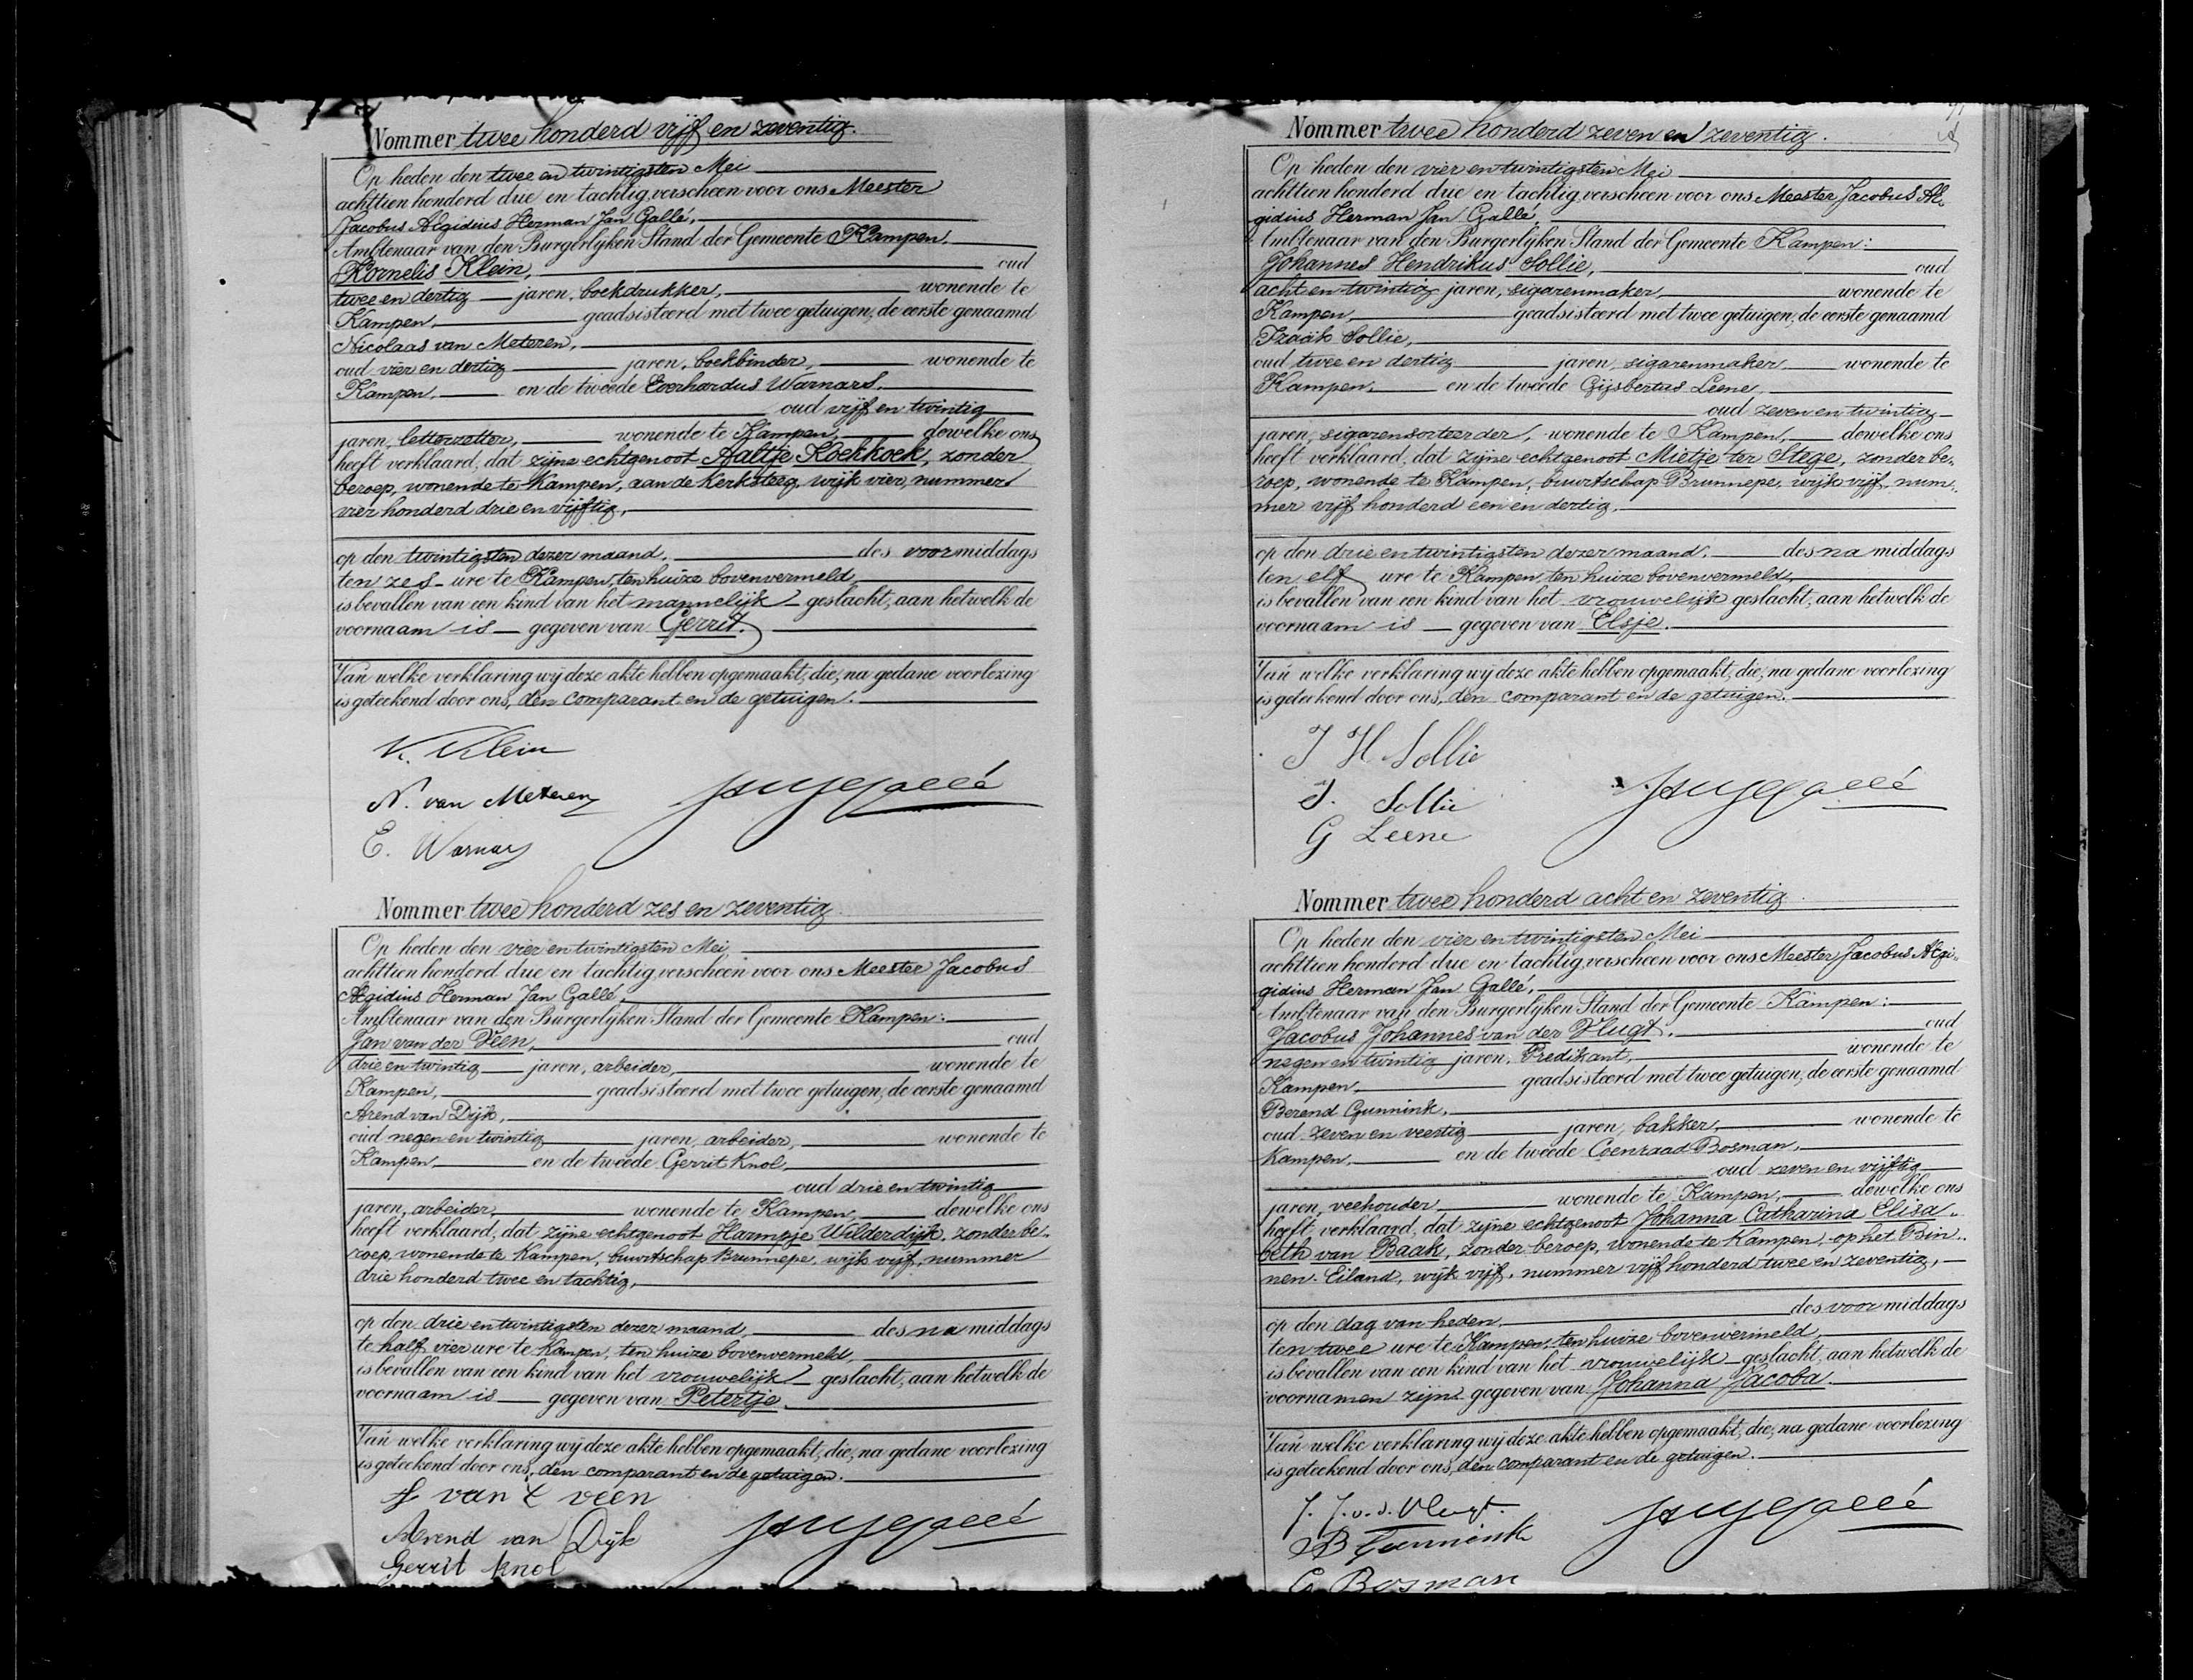 Nommer twee honderd vijf en zeventig.
Op heden den twee en twintigsten Mei
achttien honderd drie en tachtig, verscheen voor ons Meester
Jacobus Aegidius Herman Jan Gallé,
Ambtenaar van den Burgerlijken Stand der Gemeente Kampen.
Kornelis Klein, oud
twee en dertig jaren, boekdrukker, wonende te
Kampen, geadsisteerd met twee getuigen, de eerste genaamd
Nicolaas van Meteren,
oud vier en dertig jaren, boekbinder, wonende te
Kampen, en de tweede Everhardus Warnars,
oud vijf en twintig
jaren, letterzetter, wonende te Kampen, dewelke ons
heeft verklaard, dat zijne echtgenoot Aaltje Koekkoek, zonder
beroep, wonende te Kampen, aan de Kerksteeg, wijk vier, nummer
vier honderd drie en vijftig,
op den twintigsten dezer maand, des voormiddags
ten zes ure te Kampen, ten huize bovenvermeld,
is bevallen van een kind van het mannelijk geslacht, aan hetwelk de
voornaam is gegeven van Gerrit.
Van welke verklaring wij deze akte hebben opgemaakt, die, na gedane voorlezing
is geteekend door ons, den comparant en de getuigen.
K. Klein
N. van Meteren
E. Warnars
Nommer twee honderd zes en zeventig
Op heden den vier en twintigsten Mei,
achttien honderd drie en tachtig, verscheen voor ons Meester Jacobus
Aegidius Herman Jan Gallé,
Ambtenaar van den Burgerlijken Stand der Gemeente Kampen:
Jan van der Veen, oud
drie en twintig jaren, arbeider, wonende te
Kampen, geadsisteerd met twee getuigen, de eerste genaamd
Arend van Dijk,
oud negen en twintig jaren, arbeider, wonende te
Kampen en de tweede Gerrit Knol,
oud drie en twintig
jaren, arbeider, wonende te Kampen, dewelke ons
heeft verklaard, dat zijne echtgenoot Harmpje Wilderdijk, zonder be-
roep, wonende te Kampen, buurtschap Brunnepe, wijk vijf, nummer
drie honderd twee en tachtig,
op den drie en twintigsten dezer maand, des namiddags
te half vier ure te Kampen, ten huize bovenvermeld,
is bevallen van een kind van het vrouwelijk geslacht, aan hetwelk de
voornaam is gegeven van Petertje.
Van welke verklaring wij deze akte hebben opgemaakt, die, na gedane voorlezing
is geteekend door ons, den comparant en de getuigen.
van veen
Arend van Dijk
Gerrit Knol
Nommer twee honderd zeven en zeventig.
Op heden den vier en twintigsten Mei
achttien honderd drie en tachtig, verscheen voor ons Meester Jacobus Ae-
gidius Herman Jan Gallé,
Ambtenaar van den Burgerlijken Stand der Gemeente Kampen:
Johannes Hendrikus Sollie, oud
acht en twintig jaren, sigarenmaker, wonende te
Kampen, geadsisteerd met twee getuigen, de eerste genaamd
Izaäk Sollie,
oud twee en dertig jaren, sigarenmaker, wonende te
Kampen, en de tweede Gijsbertus Leene,
oud zeven en twintig
jaren, sigarensorteerder, wonende te Kampen, dewelke ons
heeft verklaard, dat zijne echtgenoot Mietje ter Stege, zonder be-
roep, wonende te Kampen, buurtschap Brunnepe, wijk vijf, num-
mer vijf honderd een en dertig,
op den drie en twintigsten dezer maand, des na middags
ten elf ure te Kampen, ten huize bovenvermeld,
is bevallen van een kind van het vrouwelijk geslacht, aan hetwelk de
voornaam is gegeven van Elsje.
Van welke verklaring wij deze akte hebben opgemaakt, die, na gedane voorlezing
is geteekend door ons, den comparant en de getuigen.
J H Sollie
J. Sollie
G Leene
Nommer twee honderd acht en zeventig
Op heden den vier en twintigsten Mei
achttien honderd drie en tachtig, verscheen voor ons Meester Jacobus Aegi-
gidius Herman Jan Gallé,
Ambtenaar van den Burgerlijken Stand der Gemeente Kampen:
Jacobus Johannes van der Vlugt, oud
negen en twintig jaren, Predikant, wonende te
Kampen, geadsisteerd met twee getuigen, de eerste genaamd
Berend Gunnink,
oud zeven en veertig jaren, bakker, wonende te
Kampen, en de tweede Coenraad Bosman,
oud zeven en vijftig
jaren, veehouder wonende te Kampen, dewelke ons
heeft verklaard, dat zijne echtgenoot Johanna Catharina Elisa-
beth van Baak, zonder beroep, wonende te Kampen, op het Bin-
nen-Eiland, wijk vijf, nummer vijf honderd twee en zeventig,
op den dag van heden, des voor middags
ten twee ure te Kampen, ten huize bovenvermeld,
is bevallen van een kind van het vrouwelijk geslacht, aan hetwelk de
voornamen zijn gegeven van Johanna Jacoba.
Van welke verklaring wij deze akte hebben opgemaakt, die, na gedane voorlezing
is geteekend door ons, den comparant en de getuigen.
J. J. v. d. Vlugt.
B Gunnink
C Bosman